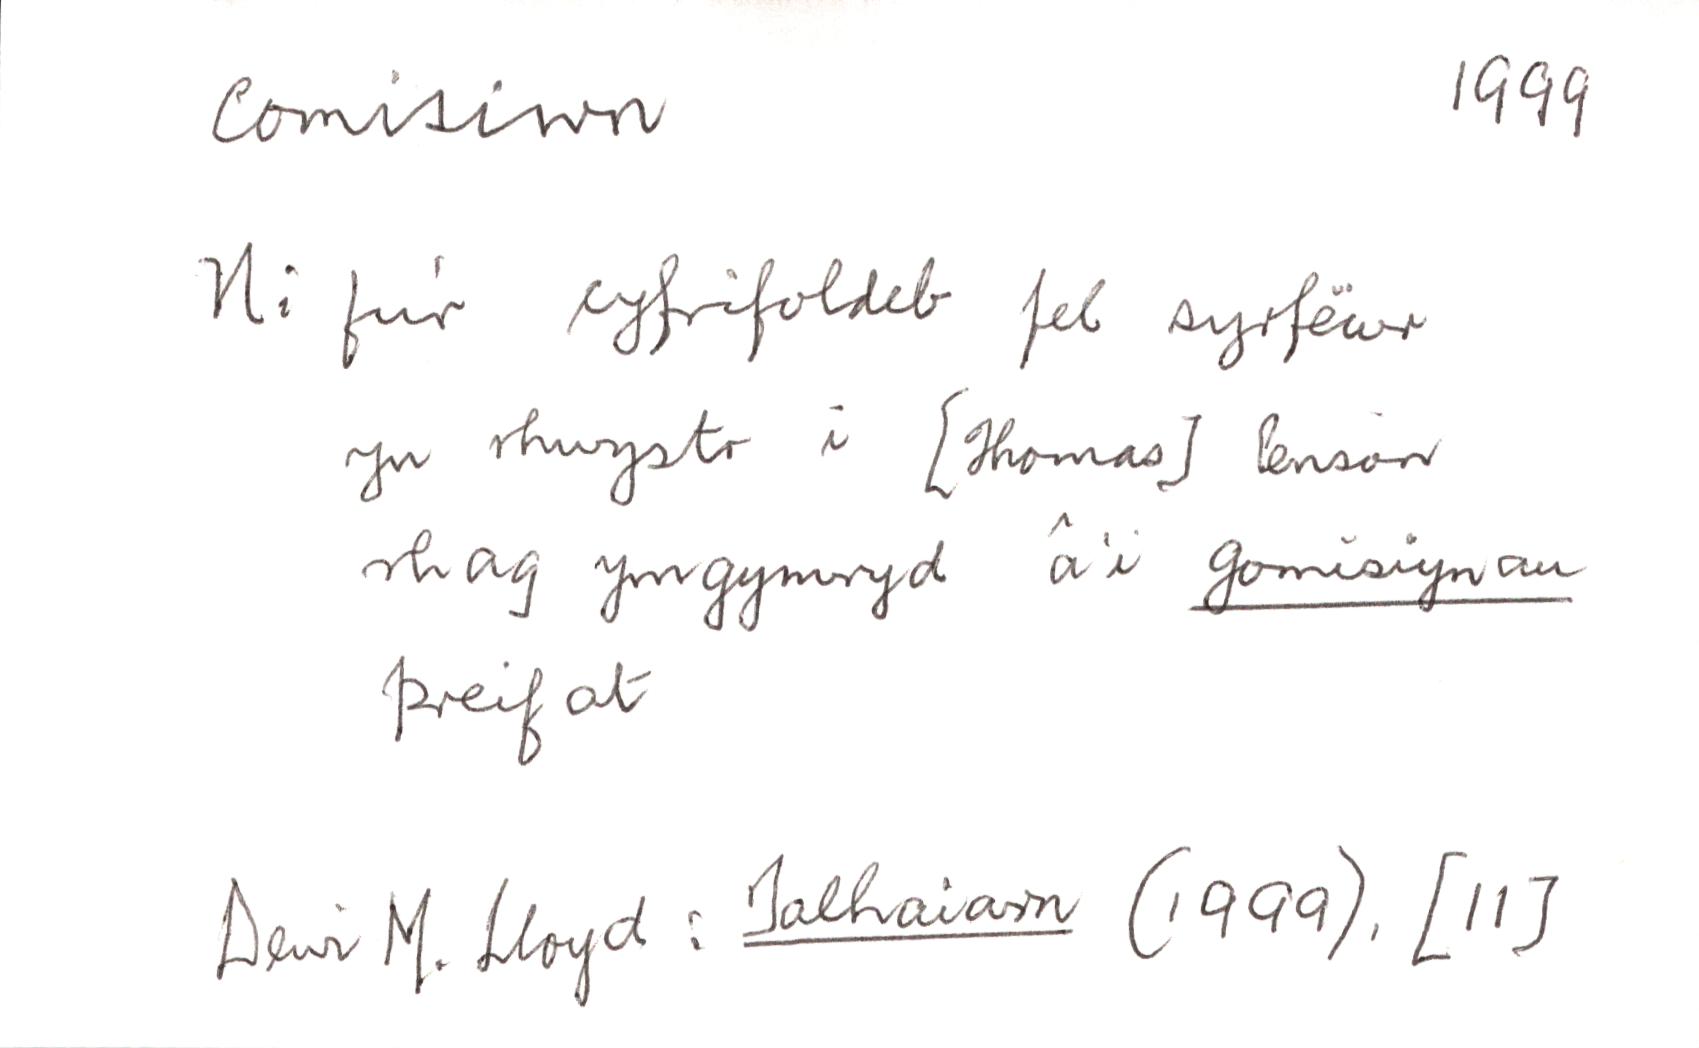 comisiwn 1999
Ni fu'r cyfrifoldeb fel syrfëwr
yn rhwystr i [Thomas] Penson
rhag ymgymryd â'i gomisiynau
preifat
Dewi M. Lloyd : Talhaiarn (1999), [11]